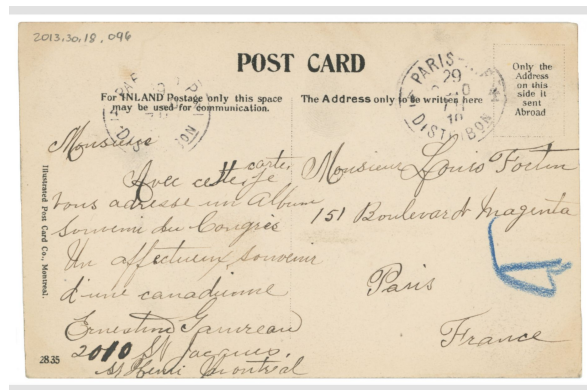 2013.30.18.096
POST CARD
For INLAND Postage only this space
may be used for communication.
The Address only to be written here
Only the
Address
on this
side it
sent
Abroad
PARIS
29
10
DISTRIBON
Monsieur
Avec cette carte je
vous adresse un Album
Souvenir du Congrès
Un affectueux souvenir
d'une canadienne
Ernestine Gauvreau
2010 St Jacques,
St Henri Montréal
Monsieur Louis Fortin
151 Boulevard Magenta
Paris
France
Illustrated Post Card Co., Montreal.
2835